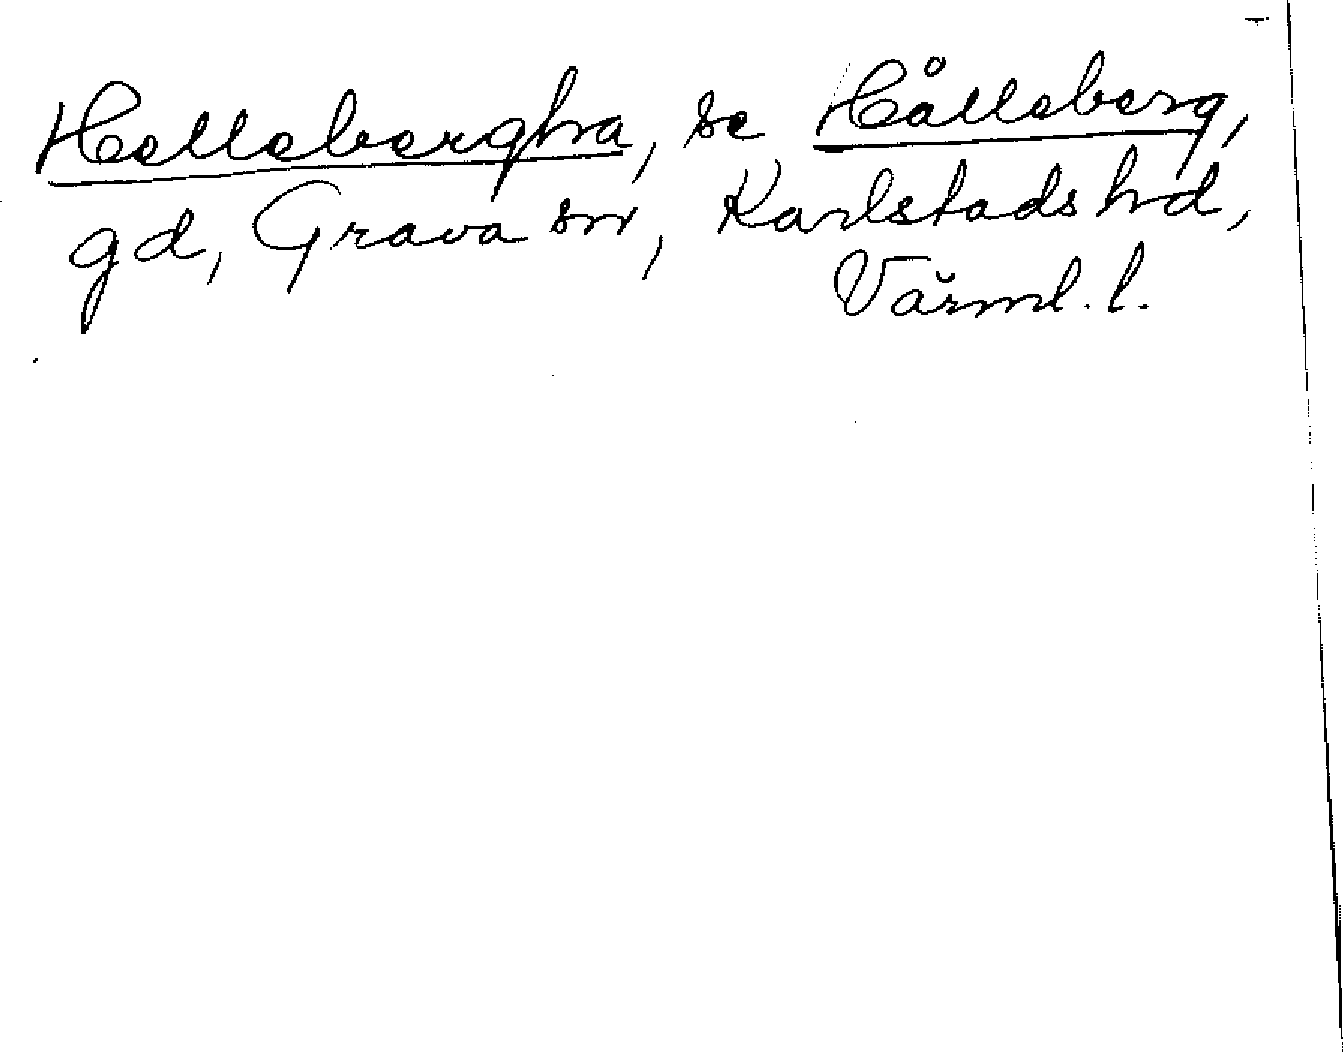 Hellebergha, se Hålleberg,
gd, Grava sn, Karlstads hd,
Värml. l.